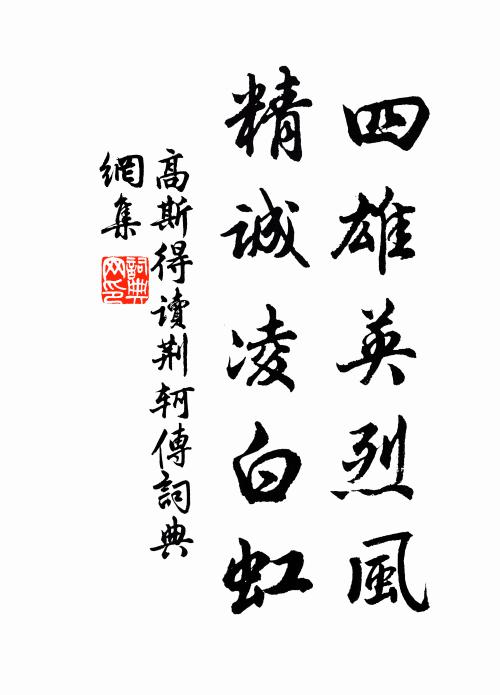 四雄英烈風
精誠凌白虹
高斯得讀荆軻傳詞典
網集
詞典
网印